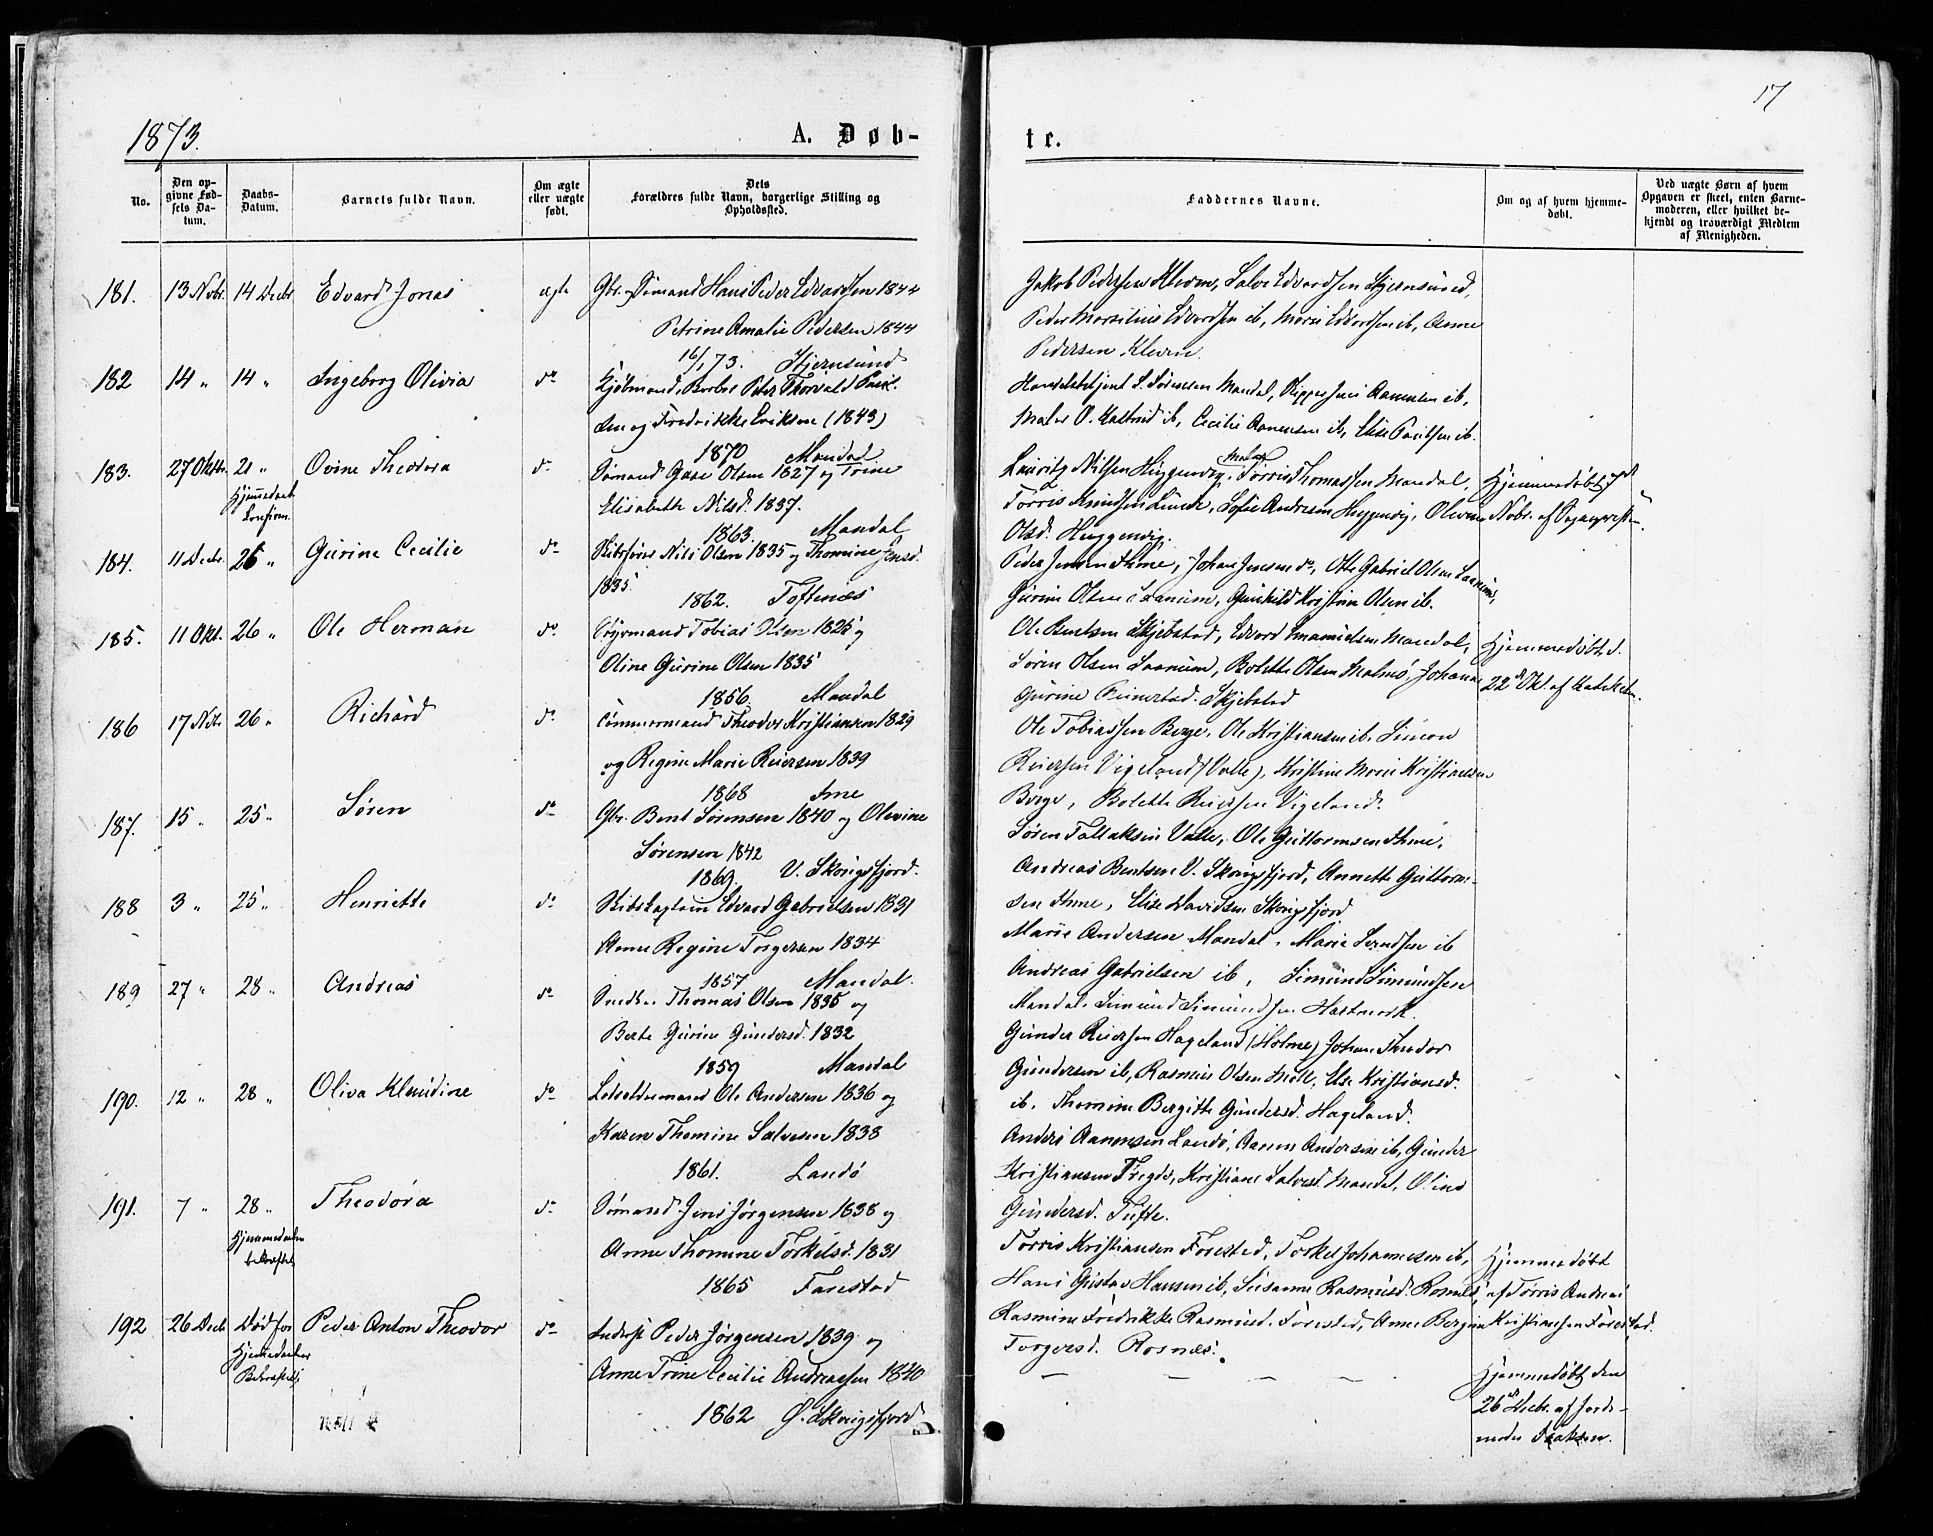 1873.
A. Døb-
te.
17
No.
Den op-
givne Fød-
sels Da-
tum.
Daabs-
Datum.
Barnets fulde Navn.
Om ægte
eller uægte
født.
Dets
Forældres fulde Navn, borgerlige Stilling og
Opholdssted.
Faddernes Navne.
Om og af hvem hjemme-
døbt.
Ved uægte Børn af hvem
Opgaven er skeet, enten Barne-
moderen, eller hvilket be-
kjendt og troværdigt Medlem
af Menigheden.
181. 13 Novbr. 14 Decbr Edvard Jonas ægte
Sømand Hans Peder Edvardsen 1844
Petrine Amalie Pedersen 1844
16/1 73. Hjernsund
Jakob Pedersen Kleven, Salve Edvardsen Hjernsund,
Peder Marselius Edvardsen ib, Edvardsen ib, Anne
Pedersen Kleven.
182 14 " 14 " Ingeborg Olivia do
Kjøbmand Peter Thorvald
og Fredrikke Eriksen (1843)
1870 Mandal
Handelsbetjent S. Sørensen Mandal, Aanensen ib,
Maler O. ib, Cecilie Aanensen ib, Elise ib.
183. 27 Oktbr. 21 " Ovine Theodora do
Hjemmedaab
Sømand Olsen 1827 og Trine
Elisabeth Nilsd. 1837.
1863. Mandal
Lauritz Nilsen Huggenvig, Tørris Thomassen Mandal,
Tørris Knudsen Lunde, Sofie Andersen Huggenvig, Olevine
Olsd. Huggenvig.
Hjemmedøbt 7de
Novbr. af Sogneprest
184. 11 Decbr. 26 " Gurine Cecilie do
Skibsfører Nils Olsen 1835 og Thomine Jensd.
1835.
1862. Toftenæs
Peder Jensen Ime, Johan Jensen do, Otte Gabriel Olsen Sannum,
Gurine Olsen Sannum, Gunhild Kristine Olsen ib.
185. 11 Okt. 26 " Ole Herman do
Styrmand Tobias Olsen 1825 og
Oline Gurine Olsen 1835
1856. Mandal
Ole Bentsen Skjebstad, Edvard Emanuelsen Mandal,
Søren Olsen Sannum, Bolette Olsen Malmø, Johanne
Gurine Reierstad. Skjebstad
Hjemmedøbt d.
22de Okt. af Kateketen.
186 17 Novbr 26 " Richard do
Tømmermand Theodor Kristiansen 1829
og Regine Marie Reiersen 1839
1868 Ime
Ole Tobiassen Berge, Ole Kristiansen ib. Simon
Reiersen Vigeland (Valle), Kristine Marie Kristiansen
Berge, Bolette Reiersen Vigeland.
187. 15 " 25 " Søren do
Gbr. Bent Sørensen 1840 og Olevine
Sørensen 1842
1869. V. Skougsfjord.
Søren Tallaksen Valle, Ole Guttormsen Ime,
Andreas Bentsen V. Skougsfjord, Annette Guttorm-
sen Ime, Elise Davidsen Skougsfjord
188 3 " 25 " Henriette do
Skibskaptein Edvard Gabrielsen 1831
Anne Regine Torgersen 1834
1857 Mandal.
Marie Andersen Mandal, Marie Berndsen ib
Andreas Gabrielsen ib, Simund Simundsen
Mandal. Simund Simundsen Hartmark.
189 27 " 28 " Andreas do
Snedker Thomas Olsen 1835 og
Berte Gurine Gundersd. 1832
1859 Mandal
Gunder Reiersen Hageland (Holme) Johan Theodor
Gundersen ib, Rasmus Olsen Møll, Else Kristiansd.
ib. Thomine Bergitte Gundersd. Hageland.
190. 12 " 28 " Oliva Klaudine do
Ledsoldermand Ole Andersen 1836 og
Karen Thomine Salvesen 1838
1861. Landø
Anders Aanensen Landø, Aanen Andersen ib, Gunder
Kristiansen Tregde, Kristiane Salvesd. Mandal, Oline
Gundersd. Tufte.
191. 7 " 28 " Theodora do
Hjemmedaaben
bekræftet
Sømand Jens Jørgensen 1838 og
Anne Thomine Torkelsd. 1831
1865 Farestad
Tørris Kristiansen Farestad, Torkel Johannesen ib,
Hans Gustav Hansen ib, Susanne Rasmusd. Rosnes,
Rasmine Fredrikke Rasmusd. Farestad, Anne Bergine
Torgersd. Rosnæs.
Hjemmedøbt
af Tørris Andreas
Kristiansen Farestad.
192 26 Decbr Død før Peder Anton Theodor do
Hjemmedaabens
Bekræftelse
Inderst Peder Jørgensen 1839 og
Anne Trine Cecilie Andreassen 1840
1862 Ø. Skougsfjord
— — — —
Hjemmedøbt den
26de Decbr. af Jorde-
moder Isaksen.